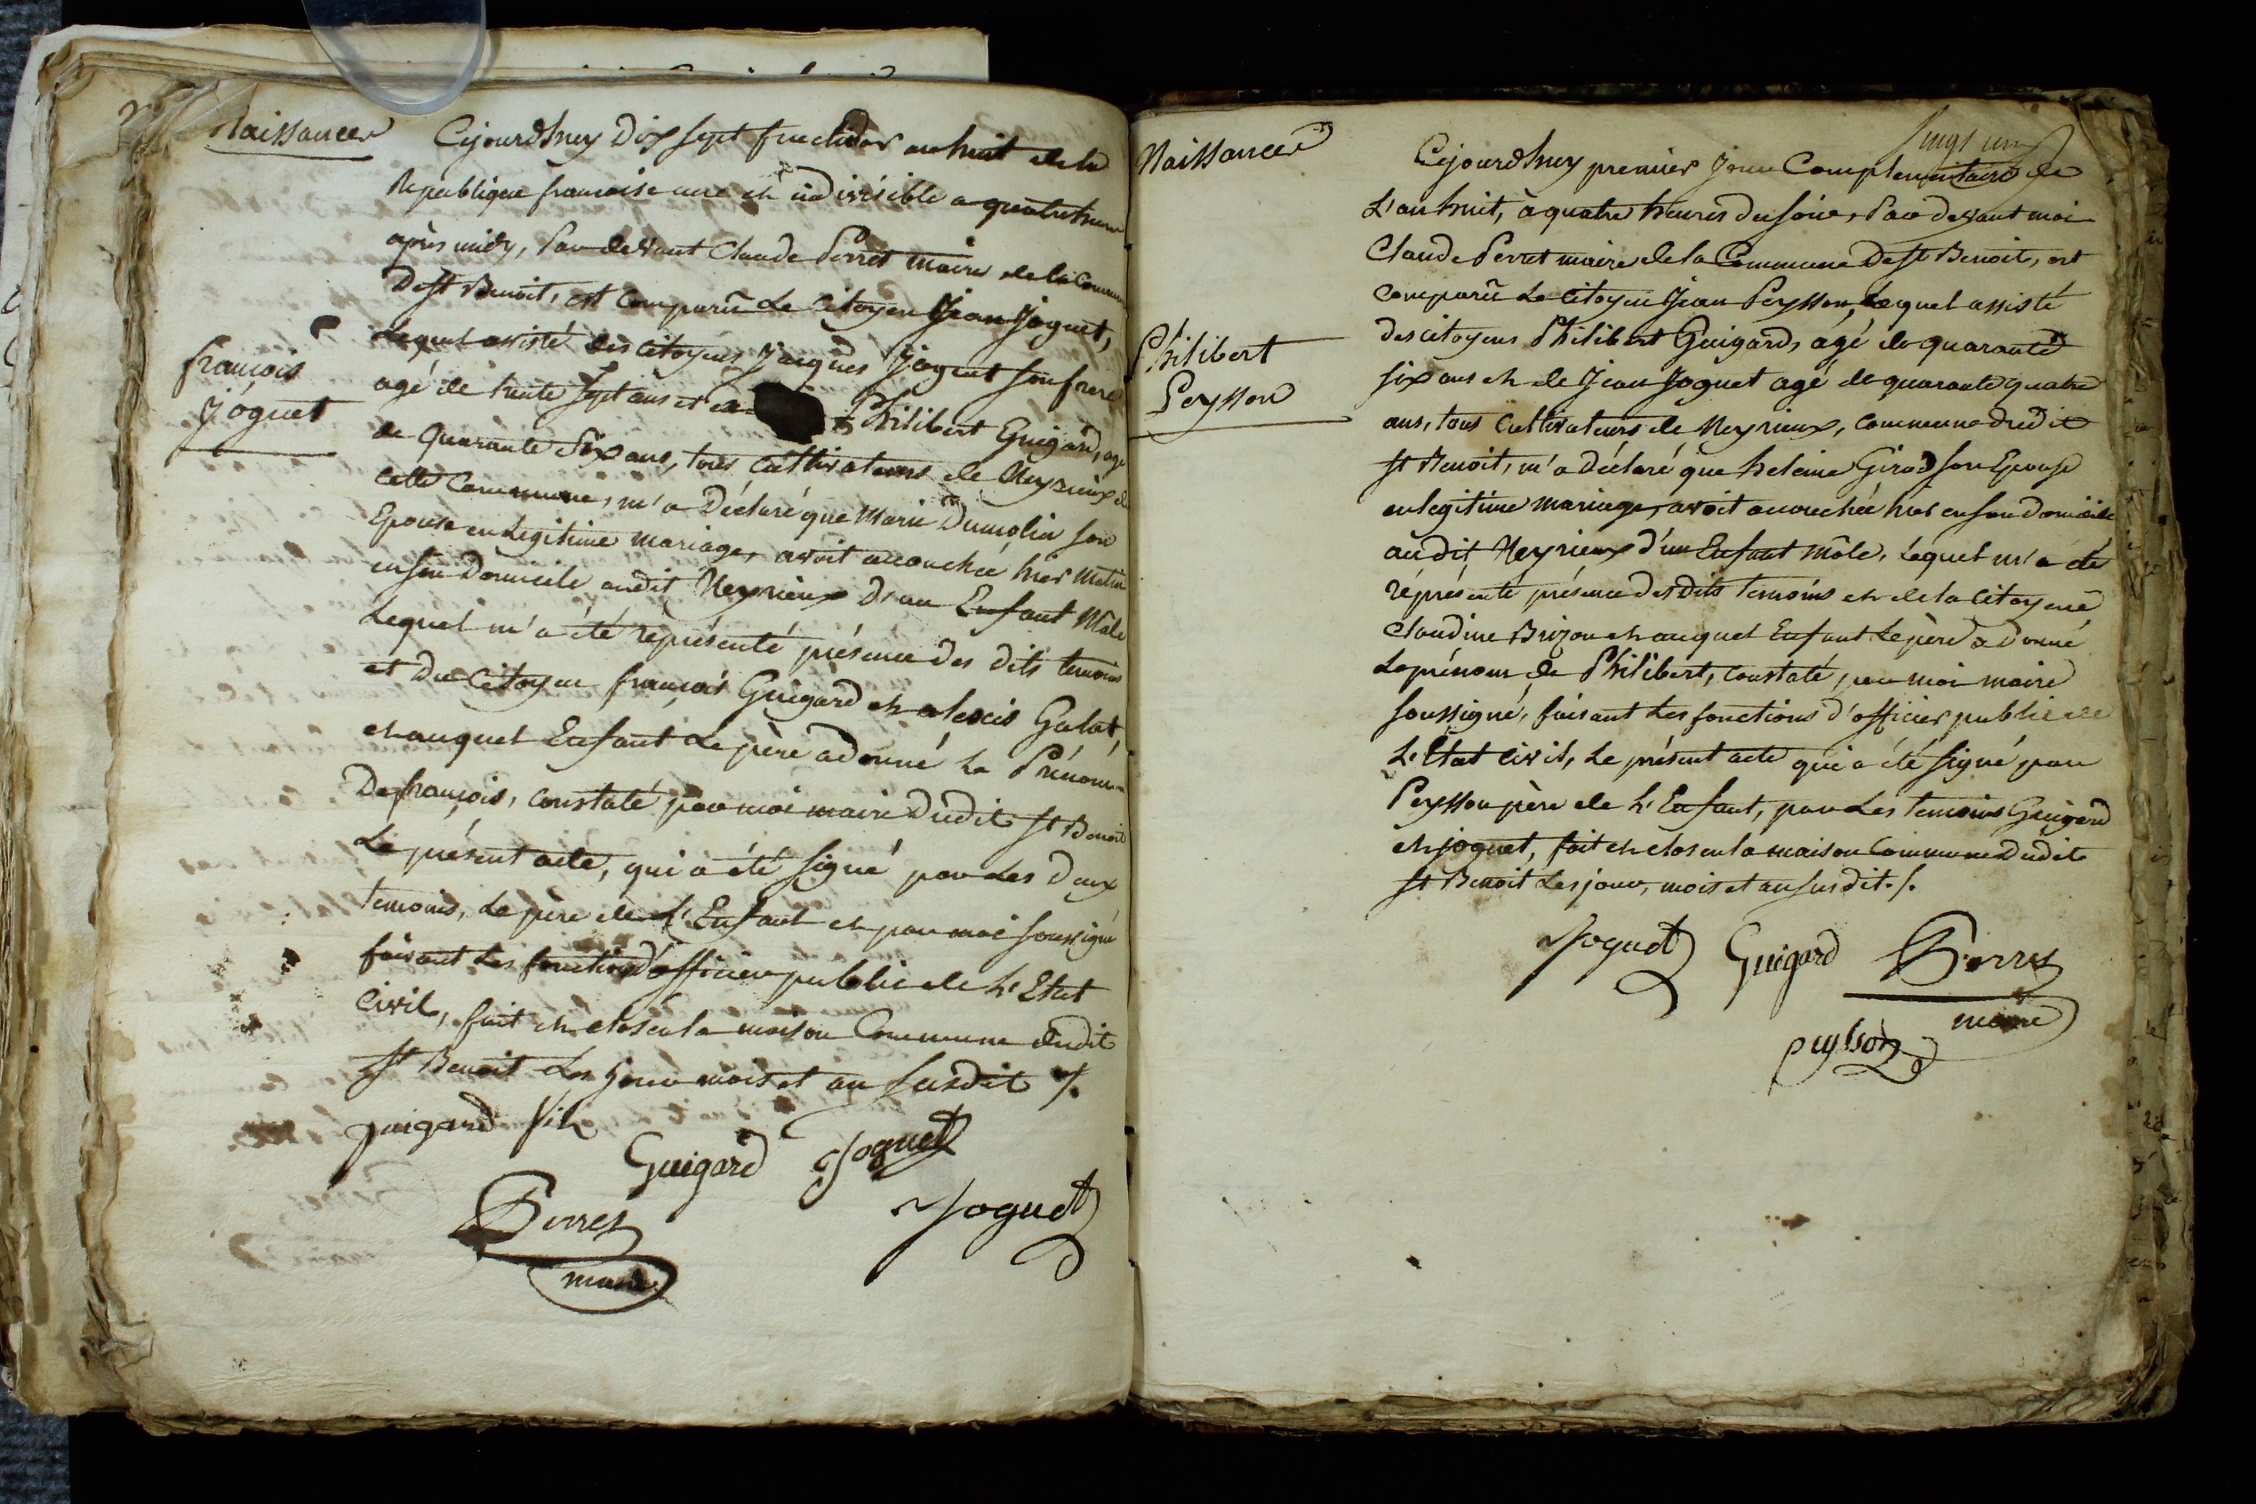 Naissance
Cejourdhuy Dix sept fructidor an huit de la
Republique francoise une et indivisible a quatre heure
après midy, Par devant Claude Perret maire de la Commune
De st Benoit, est comparu Le Citoyen Jean Joguet,
Lequel assisté des Citoyens Jacques Joguet son frere
françois
Joguet
agé de trente sept ans et de Philibert Guigard, agé
de quarante six ans, tous cultivateurs de Neyrieux de
cette commune, m'a Déclaré que Marie Dumolin son
Epouse en Legitime mariage, avoit accouchée hier matin
en son Domicile audit Neyrieux D'un Enfant Mâle
Lequel m'a été représenté présence des dits temoins
et du Citoyen françois Guigard et alexis Galat,
et auquel Enfant Le père a donné Le Prénom
De françois, constaté par moi maire Dudit st Benoit
Le présent acte, qui a été signé par Les Deux
temoins, Le père de L'Enfant et par moi soussigné
faisant Les fonctions d'officier public de L'Etat
Civil, fait et clos en la maison Commune dudit
st Benoit Les jour mois et an susdit ./.
guigard fils
Guigard Joguet
Perret Joguet
maire
vingt un
Naissance
Cejourdhuy premier Jour Complementaire de
L'an huit, à quatre heures du soir, Par devant moi
Claude Perret maire de la Commune De st Benoit, est
comparu Le Citoyen Jean Peysson, Lequel assisté
Philibert
Peysson
des citoyens Philibert Guigard, agé de quarante
six ans et de Jean Joguet agé de quarante quatre
ans, tous Cultivateurs de Neyrieux, commune dudit
st Benoit, m'a Déclaré que heleine Girod son Epouse
en legitime mariage, avoit accouchée hier en son domicile
audit Neyrieux d'un Enfant Mâle, Lequel m'a été
réprésenté présence des dits temoins et de la Citoyene
Claudine Brizon et auquel Enfant Le père a Donné
Le prénom de Philibert, constaté, par moi maire
soussigné, faisant Les fonctions d'officier public de
L'Etat civil, Le présent acte qui a été signé par
Peysson père de L'Enfant, par Les temoins Guigard
et joguet, fait et clos en la maison Commune Dudit
st Benoit Les jour, mois et an susdit ./.
Joguet Guigard Perret
maire
peysson